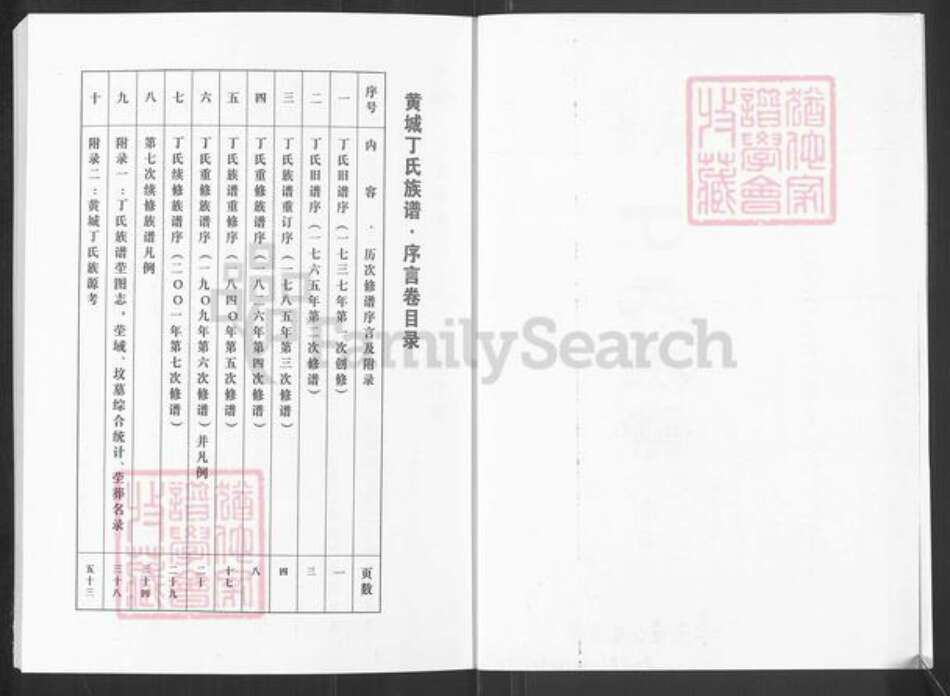 黄城丁氏族谱·序言卷目录
序号 内容·历次修谱序言及附录 页数
一 丁氏旧谱序(一七三七年第一次创修) 一
二 丁氏旧谱序(一七六五年第二次修谱) 三
三 丁氏族谱重订序(一七八五年第三次修谱) 四
四 丁氏重修族谱序(一八二六年第四次修谱) 八
五 丁氏族谱重修序(一八四〇年第五次修谱) 十七
六 丁氏重修族谱序(一九〇九年第六次修谱)并凡例 二十
七 丁氏续修族谱序(二〇〇一年第七次修谱) 二十九
八 第七次续修族谱凡例 三十四
九 附录一:丁氏族谱茔图志,茔域、坟墓综合统计、茔葬名录 三十八
十 附录二:黄城丁氏族源考 五十三
FamilySearch
猶他家
譜學會
收藏
猶他家
譜學會
收藏